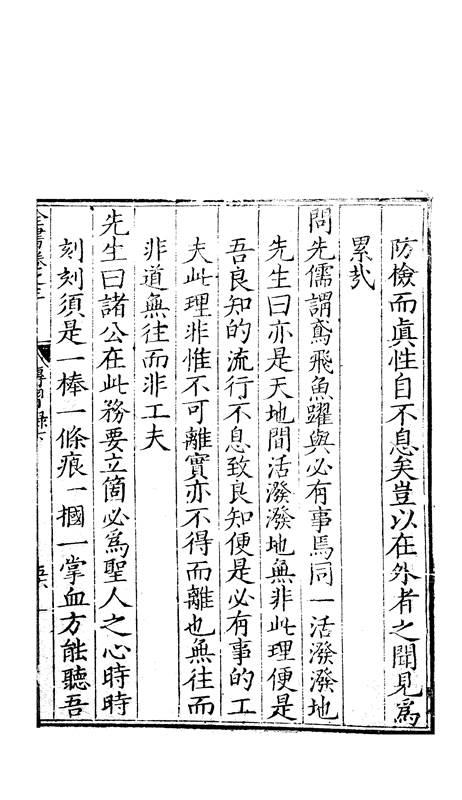 防檢而眞性自不息矣豈以在外者之聞見爲
累㦲
問先儒謂鳶飛魚躍與必有事焉同一活潑潑地
先生曰亦是天地間活潑潑地無非此理便是
吾良知的流行不息致良知便是必有事的工
夫此理非惟不可離實亦不得而離也無往而
非道無往而非工夫
先生曰諸公在此務要立箇必爲聖人之心時時
刻刻須是一棒一條痕一摑一掌血方能聽吾
傳習錄下